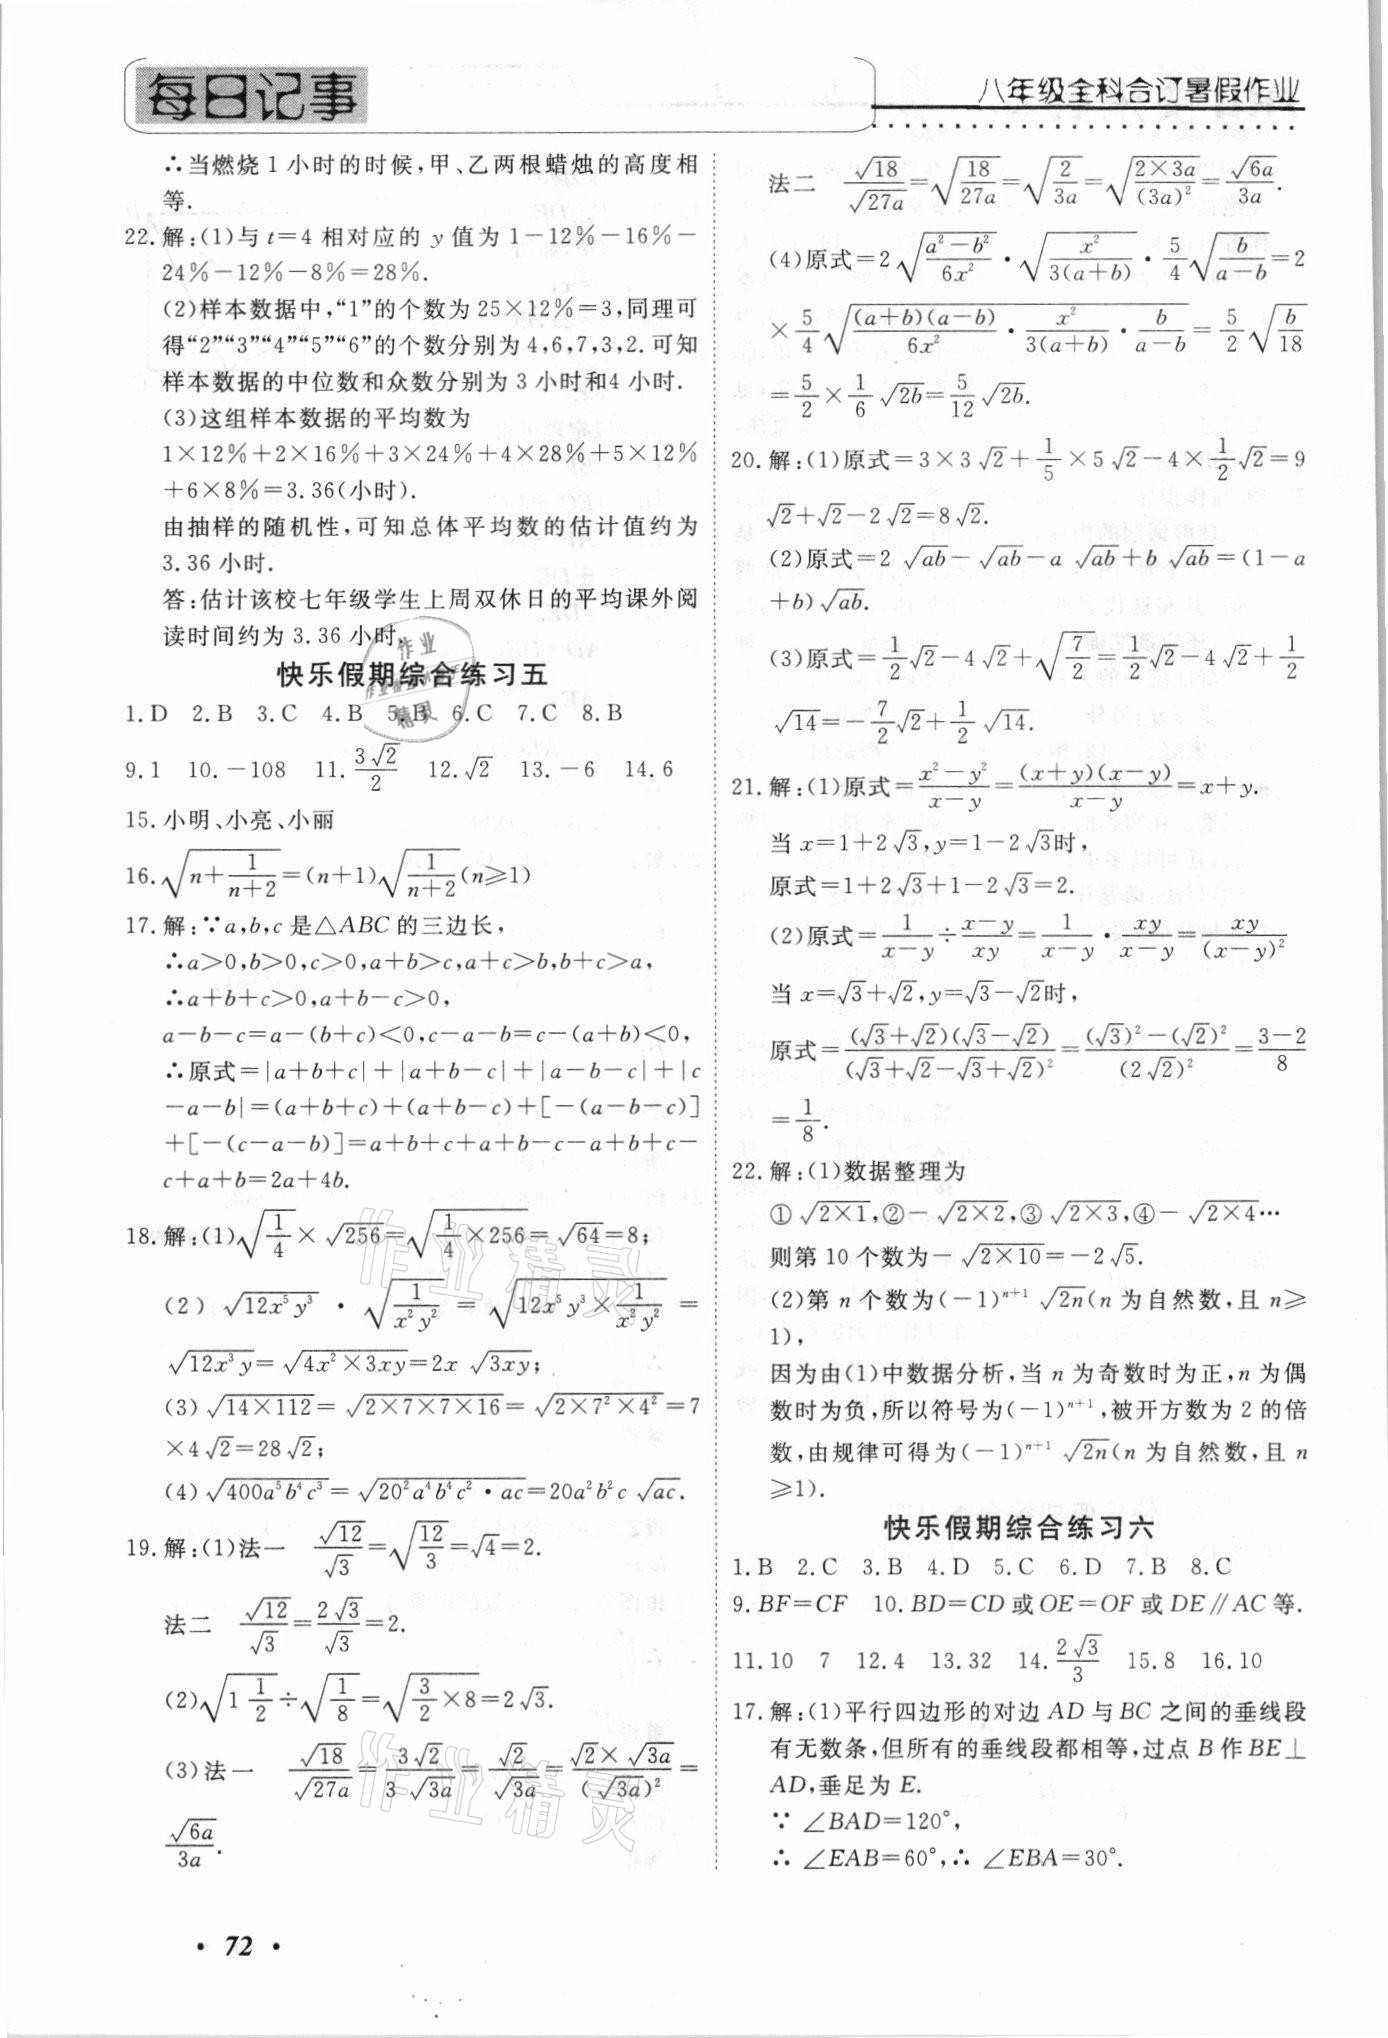 每日记事
八年级全科合订暑假作业
∴当燃烧1小时的时候,甲、乙两根蜡烛的高度相
等.
22.解:(1)与t=4相对应的y值为1-12%-16%-
24%-12%-8%=28%.
(2)样本数据中,“1”的个数为25×12%=3,同理可
得“2”“3”“4”“5”“6”的个数分别为4,6,7,3,2.可知
样本数据的中位数和众数分别为3小时和4小时.
(3)这组样本数据的平均数为
1×12%+2×16%+3×24%+4×28%+5×12%
+6×8%=3.36(小时).
由抽样的随机性,可知总体平均数的估计值约为
3.36小时.
答:估计该校七年级学生上周双休日的平均课外阅
读时间约为3.36小时.
快乐假期综合练习五
1.D 2.B 3.C 4.B 5.B 6.C 7.C 8.B
9.1 10.-108 11.3√2/2 12.√2 13.-6 14.6
15.小明、小亮、小丽
16.√(n+1/(n+2))=(n+1)√(1/(n+2))(n≥1)
17.解:∵a,b,c是△ABC的三边长,
∴a>0,b>0,c>0,a+b>c,a+c>b,b+c>a,
∴a+b+c>0,a+b-c>0,
a-b-c=a-(b+c)<0,c-a-b=c-(a+b)<0,
∴原式=|a+b+c|+|a+b-c|+|a-b-c|+|c
-a-b|=(a+b+c)+(a+b-c)+[-(a-b-c)]
+[-(c-a-b)]=a+b+c+a+b-c-a+b+c-
c+a+b=2a+4b.
18.解:(1)√(1/4)×√256=√(1/4×256)=√64=8;
(2)√(12x⁵y³)·√(1/(x²y²))=√(12x⁵y³×1/(x²y²))=
√(12x³y)=√(4x²×3xy)=2x√(3xy);
(3)√(14×112)=√(2×7×7×16)=√(2×7²×4²)=7
×4√2=28√2;
(4)√(400a⁵b⁴c³)=√(20²a⁴b⁴c²·ac)=20a²b²c√(ac).
19.解:(1)法一 √12/√3=√(12/3)=√4=2.
法二 √12/√3=2√3/√3=2.
(2)√(1 1/2)÷√(1/8)=√(3/2×8)=2√3.
(3)法一 √18/√(27a)=3√2/(3√(3a))=√2/√(3a)=(√2×√(3a))/(√(3a))²=
√(6a)/(3a).
法二 √18/√(27a)=√(18/(27a))=√(2/(3a))=√((2×3a)/(3a)²)=√(6a)/(3a).
(4)原式=2√((a²-b²)/(6x²))·√(x²/(3(a+b)))·5/4√(b/(a-b))=2
×5/4√((a+b)(a-b)/(6x²)·x²/(3(a+b))·b/(a-b))=5/2√(b/18)
=5/2×1/6√(2b)=5/12√(2b).
20.解:(1)原式=3×3√2+1/5×5√2-4×1/2√2=9
√2+√2-2√2=8√2.
(2)原式=2√(ab)-√(ab)-a√(ab)+b√(ab)=(1-a
+b)√(ab).
(3)原式=1/2√2-4√2+√(7/2)=1/2√2-4√2+1/2
√14=-7/2√2+1/2√14.
21.解:(1)原式=(x²-y²)/(x-y)=((x+y)(x-y))/(x-y)=x+y.
当x=1+2√3,y=1-2√3时,
原式=1+2√3+1-2√3=2.
(2)原式=1/(x-y)÷(x-y)/(xy)=1/(x-y)·xy/(x-y)=xy/(x-y)²
当x=√3+√2,y=√3-√2时,
原式=((√3+√2)(√3-√2))/(√3+√2-√3+√2)²=((√3)²-(√2)²)/(2√2)²=(3-2)/8
=1/8.
22.解:(1)数据整理为
①√(2×1),②-√(2×2),③√(2×3),④-√(2×4)…
则第10个数为-√(2×10)=-2√5.
(2)第n个数为(-1)ⁿ⁺¹√(2n)(n为自然数,且n≥
1),
因为由(1)中数据分析,当n为奇数时为正,n为偶
数时为负,所以符号为(-1)ⁿ⁺¹,被开方数为2的倍
数,由规律可得为(-1)ⁿ⁺¹√(2n)(n为自然数,且n
≥1).
快乐假期综合练习六
1.B 2.C 3.B 4.D 5.C 6.D 7.B 8.C
9.BF=CF 10.BD=CD或OE=OF或DE∥AC等.
11.10 7 12.4 13.32 14.2√3/3 15.8 16.10
17.解:(1)平行四边形的对边AD与BC之间的垂线段
有无数条,但所有的垂线段都相等,过点B作BE⊥
AD,垂足为E.
∵∠BAD=120°,
∴∠EAB=60°,∴∠EBA=30°.
· 72 ·
作业精灵
作业精灵